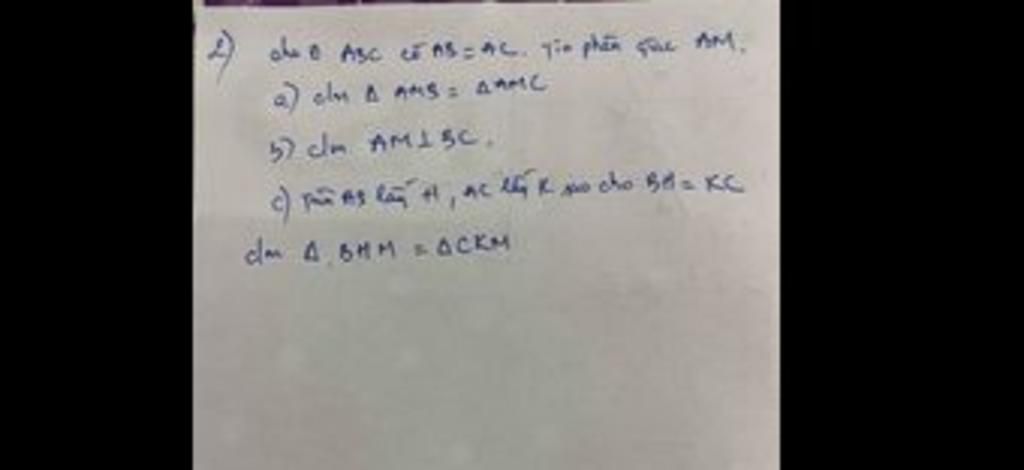 2) cho Δ ABC có AB = AC. Tia phân giác AM.
a) c/m Δ AMB = ΔAMC
b) c/m AM ⊥ BC.
c) Trên AB lấy H, AC lấy K sao cho BH = KC
c/m Δ BHM = ΔCKM